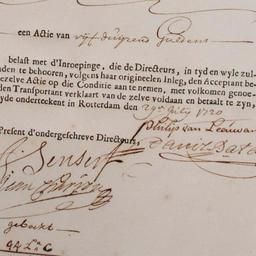 een Actie van vijf duijzend Guldens
belast met d'Inroepinge, die de Directeurs, in tyd en wyle zul-
den te behooren, volgens haar origineelen Inleg, den Acceptant be-
zelve Actie op die Conditie aan te nemen, met volkomen genoe-
den Transportant verklaart van de zelve voldaan en betaalt te zyn,
yde onderteekent in Rotterdam den 29en July 1720
Present d'ondergeschreve Directeurs,
Philips van Leeuwan
geboekt